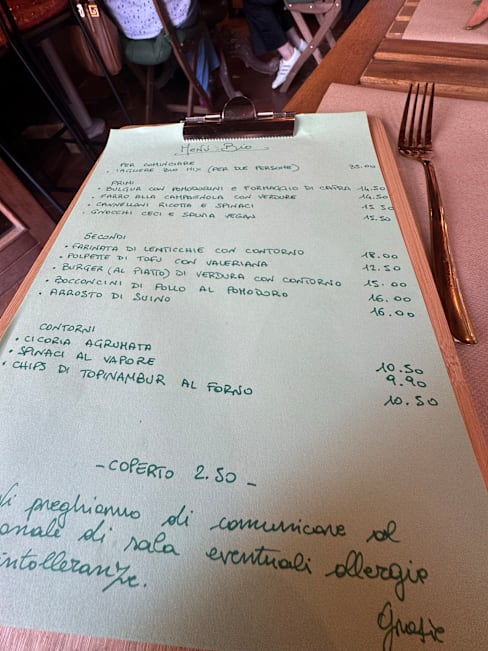 MENÙ BIO
PER COMINCIARE
• TAGLIERE BIO MIX (PER DUE PERSONE) 35.00
PRIMI
• BULGUR CON POMODORINI E FORMAGGIO DI CAPRA 14.50
• FARRO ALLA CAMPAGNOLA CON VERDURE 14.50
• CANNELLONI RICOTTA E SPINACI 15.50
• GNOCCHI CECI E SALVIA VEGAN 15.50
SECONDI
• FARINATA DI LENTICCHIE CON CONTORNO 18.00
• POLPETE DI TOFU CON VALERIANA 12.50
• BURGER (AL PIATTO) DI VERDURA CON CONTORNO 15.00
• BOCCONCINI DI POLLO AL POMODORO 16.00
• ARROSTO DI SUINO 16.00
CONTORNI
• CICORIA AGRUMATA 10.50
• SPINACI AL VAPORE 9.90
• CHIPS DI TOPINAMBUR AL FORNO 10.50
- COPERTO 2.50 -
Vi preghiamo di comunicare al
onale di sala eventuali allergie
intolleranze.
Grazie